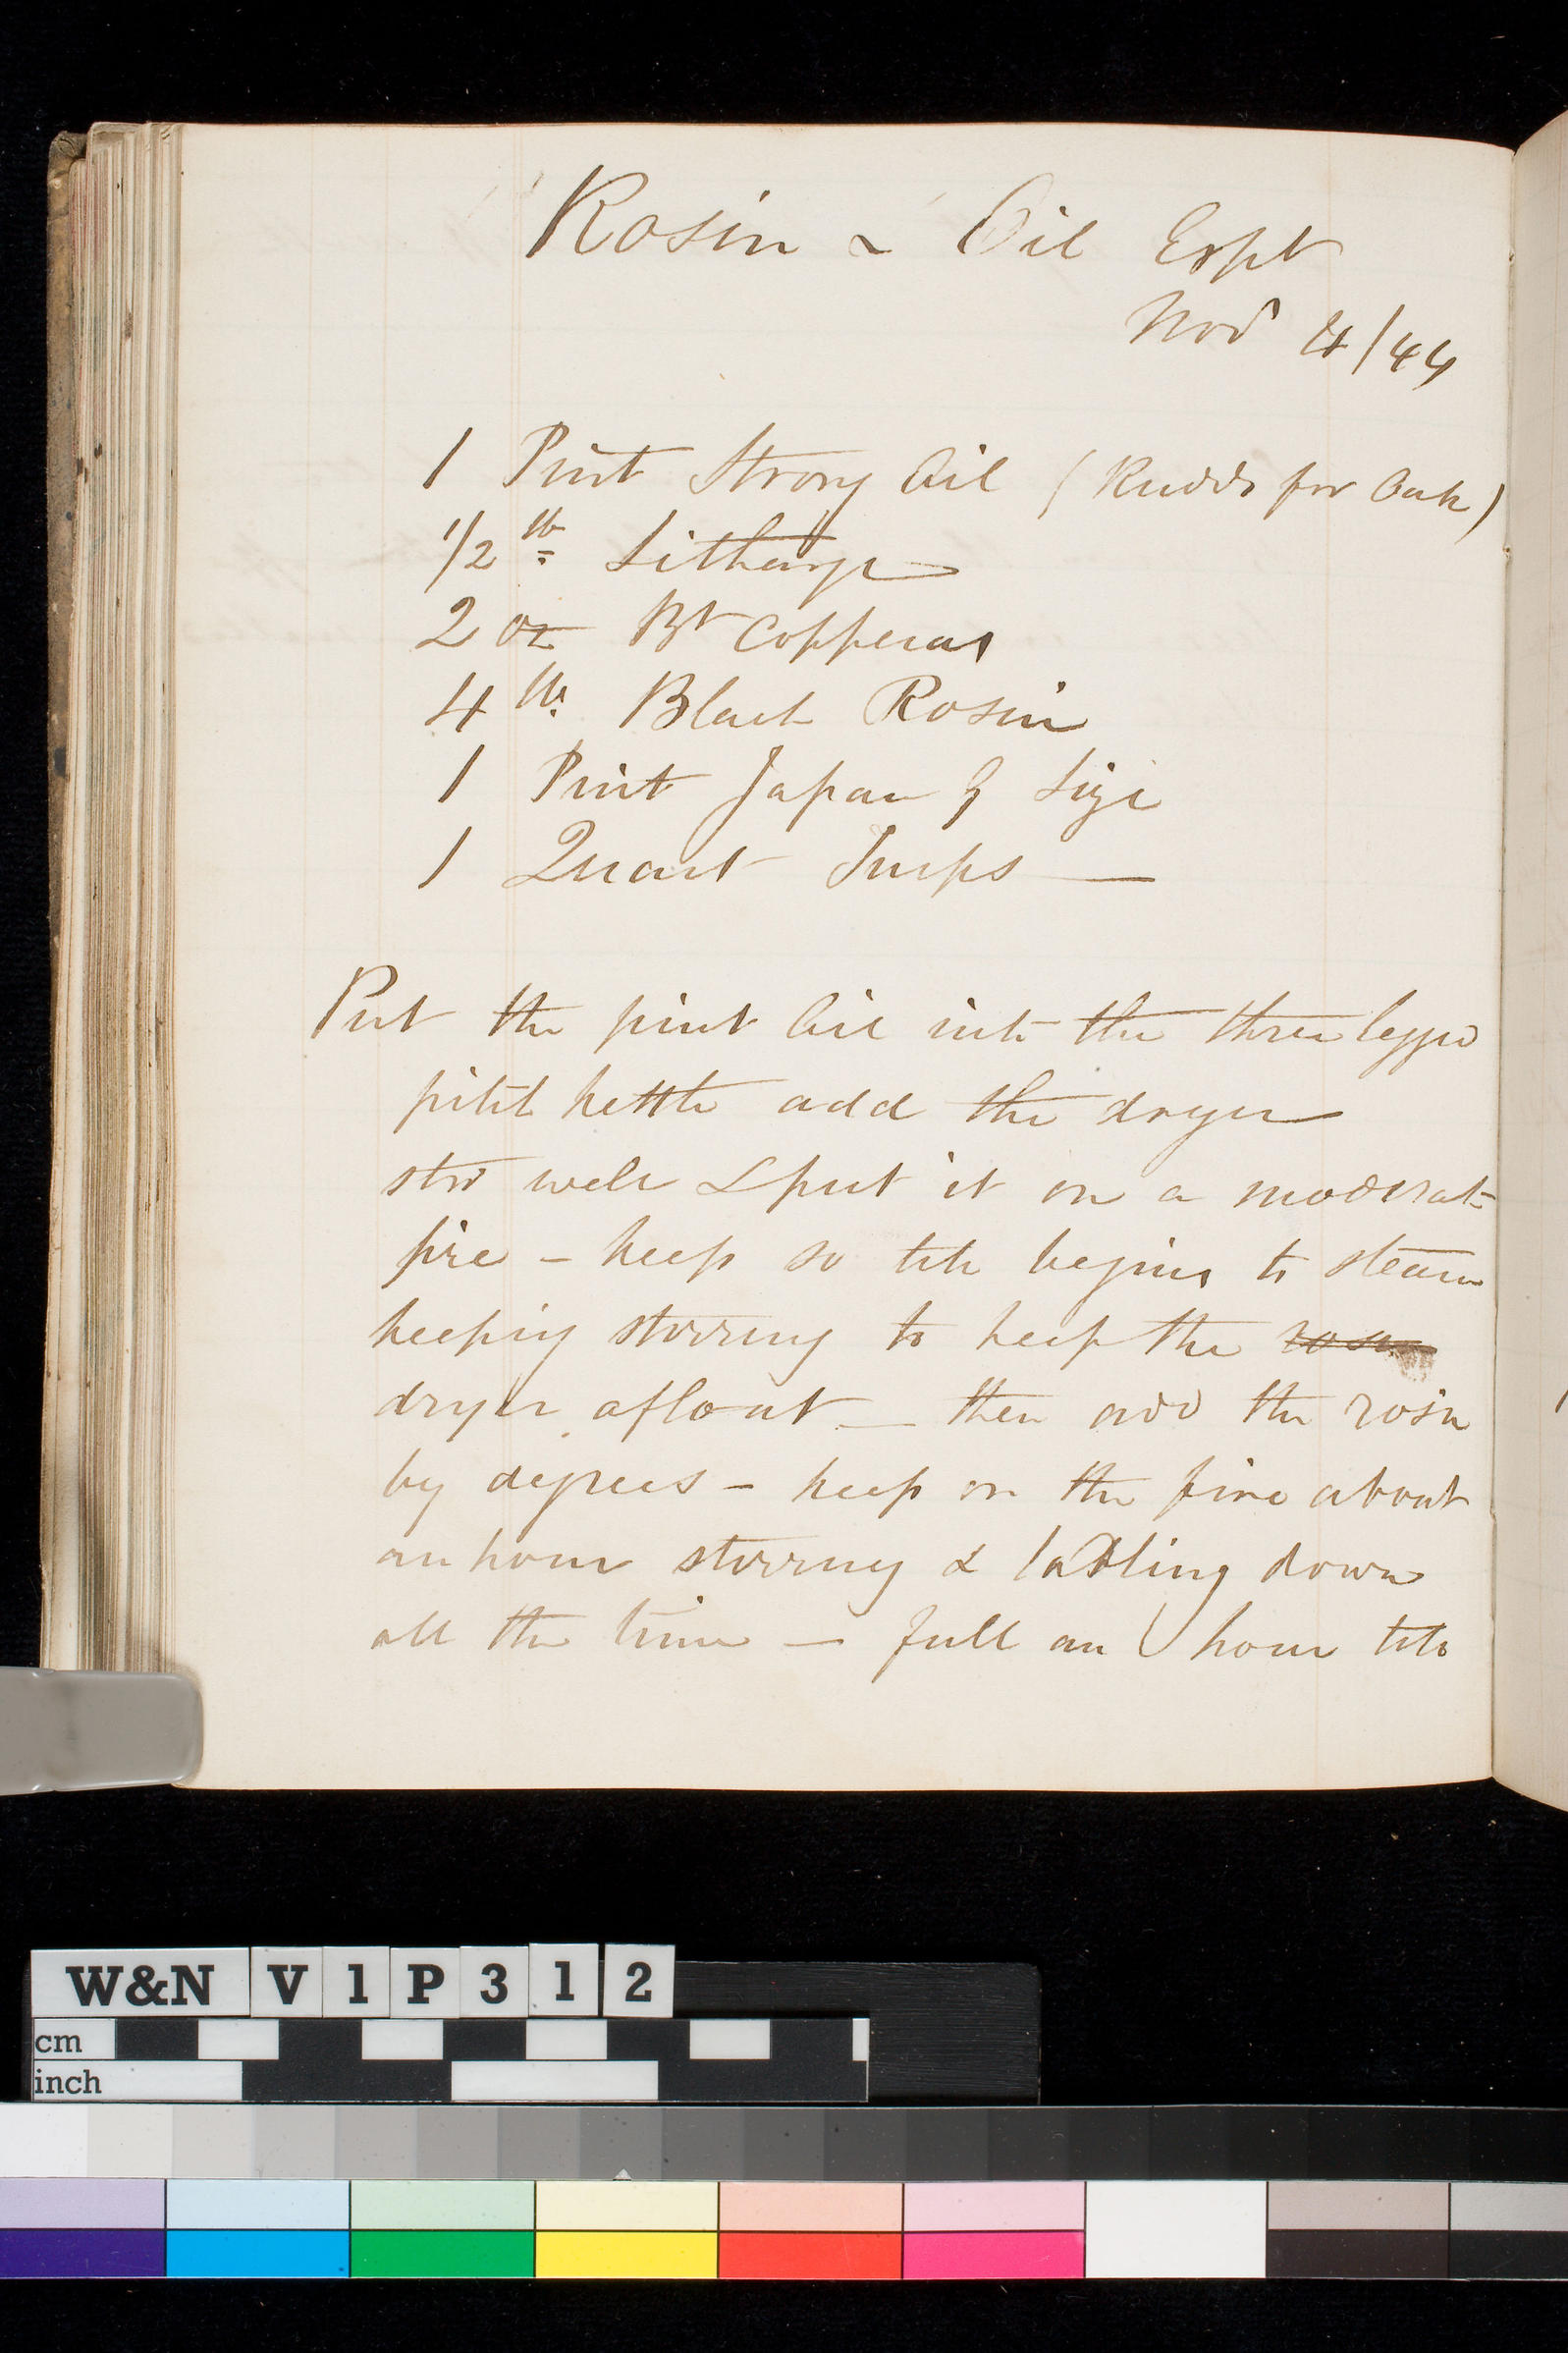 Rosin & Oil Expt
Nov 4/44
1 Pint Strong Oil (Rudds for Oak)
1/2 lb Litharge
2 oz Bt Copperas
4 lbs Black Rosin
1 Pint Japan G Size
1 Quart Turps —
Put the pint Oil into the three legged
pitch kettle add the dryer
stir well & put it on a moderate
fire – keep so till begins to steam
keeping stirring to keep the rosin
dryer afloat — then add the rosin
by degrees – keep on the fire about
an hour stirring & ladling down
all the time — full an hour till
W&N V1P312
cm
inch